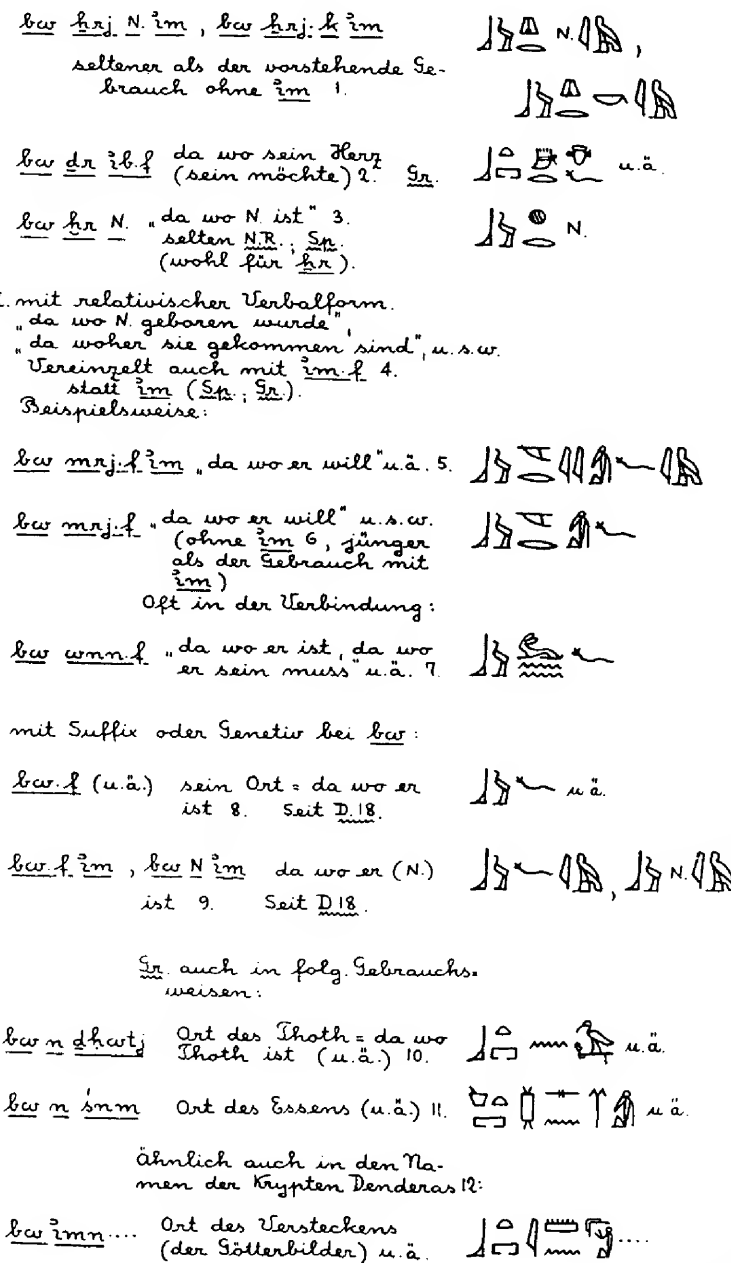 bw ẖrj N. ı͗m , bw ẖrj·k ı͗m N. ,
seltener als der vorstehende Ge-
brauch ohne ı͗m 1.
bw dr ı͗b.f da wo sein Herz
(sein möchte) 2. Gr. u.ä.
bw ḫr N. „da wo N. ist" 3. N.
selten N.R., Sp.
(wohl für ẖr).
. mit relativischer Verbalform.
„da wo N. geboren wurde",
„da woher sie gekommen sind", u.s.w.
Vereinzelt auch mit ı͗m·f 4.
statt ı͗m (Sp., Gr.).
Beispielsweise:
bw mrj·f ı͗m „da wo er will" u.ä. 5.
bw mrj·f „da wo er will" u.s.w.
(ohne ı͗m 6, jünger
als der Gebrauch mit
ı͗m)
Oft in der Verbindung:
bw wnn·f „da wo er ist, da wo
er sein muss" u.ä. 7.
mit Suffix oder Genetiv bei bw:
bw·f (u.ä.) sein Ort = da wo er u.ä.
ist 8. Seit D.18.
bw·f ı͗m , bw N ı͗m da wo er (N.) , N.
ist 9. Seit D 18.
Gr. auch in folg. Gebrauchs-
weisen:
bw n dḥwtj Ort des Thoth = da wo u.ä.
Thoth ist (u.ä.) 10.
bw n śnm Ort des Essens (u.ä.) 11. u.ä.
ähnlich auch in den Na-
men der Krypten Denderas 12:
bw ı͗mn.... Ort des Versteckens ....
(der Götterbilder) u.ä.